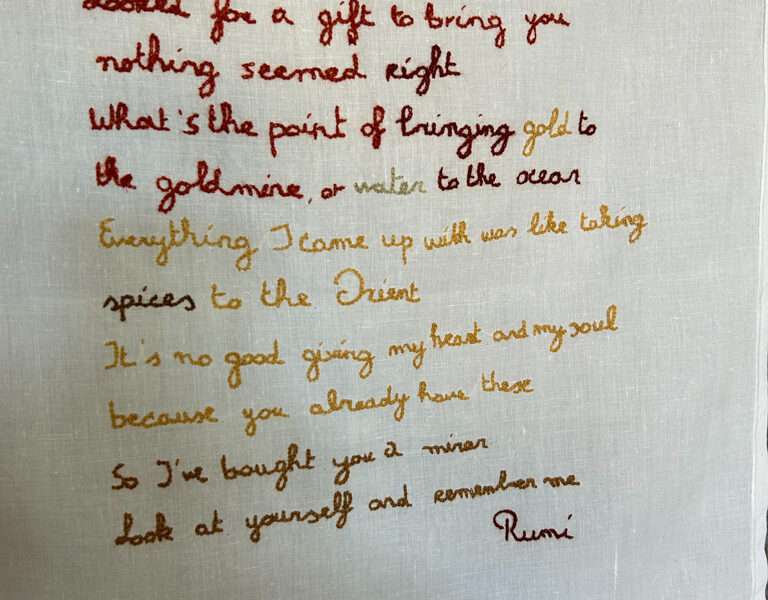 Looked for a gift to bring you
nothing seemed right
What's the point of bringing gold to
the goldmine, or water to the ocean
Everything I came up with was like taking
spices to the Orient
It's no good giving my heart and my soul
because you already have these
So I've bought you a mirror
Look at yourself and remember me
Rumi